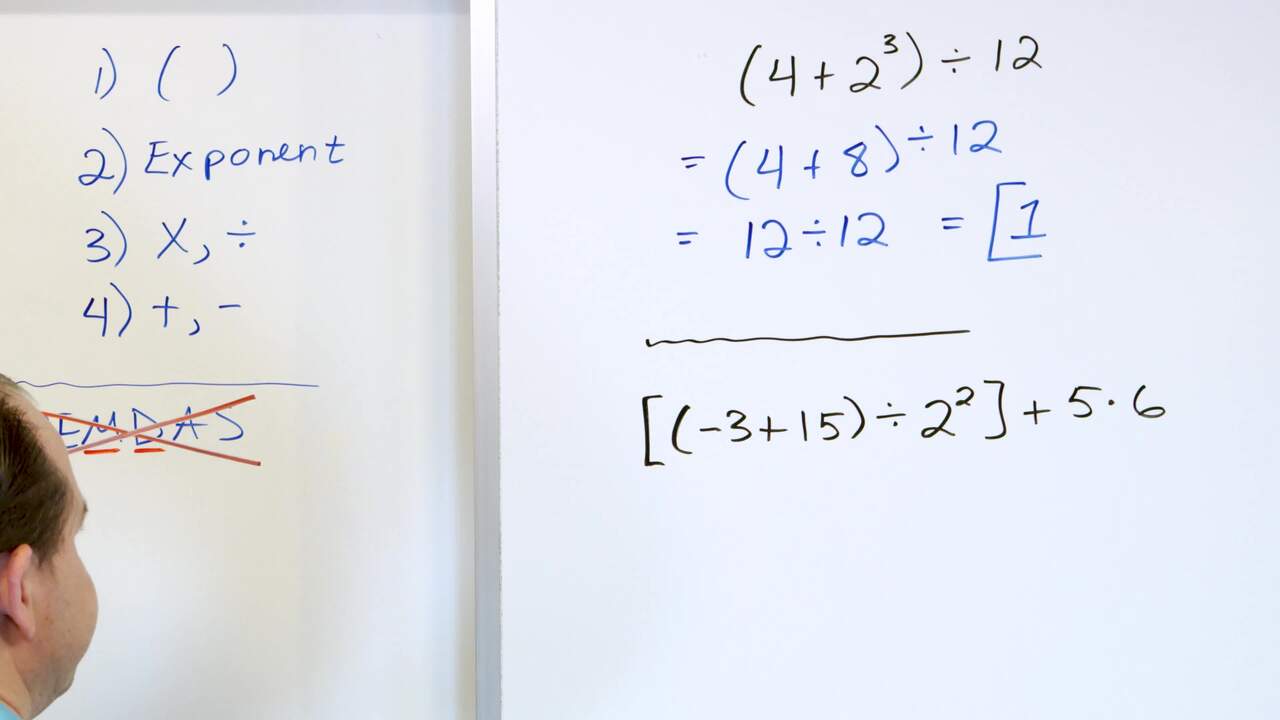 1) ( )
2) Exponent
3) X, ÷
4) +, -
EMDAS
(4 + 2³) ÷ 12
= (4 + 8) ÷ 12
= 12 ÷ 12 = 1
[(-3 + 15) ÷ 2²] + 5 · 6